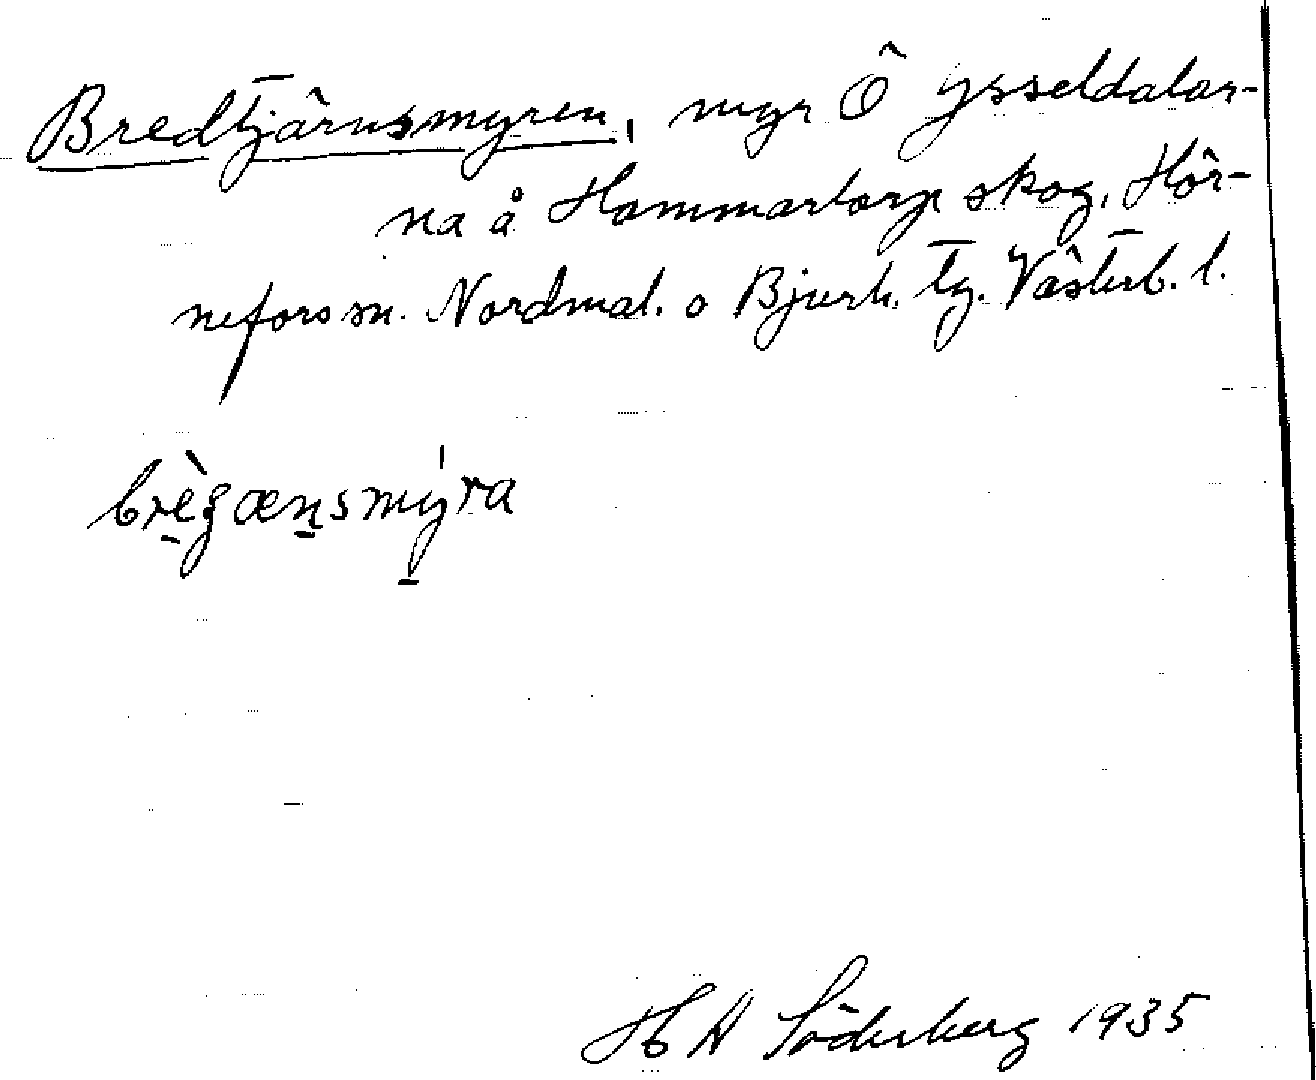 Bredtjärnsmyren, myr Ö Ysseldalar-
na å Hammartorp skog, Hör-
nefors sn. Nordmal. o Bjurh. tg. Västerb. l.
H A Söderberg 1935